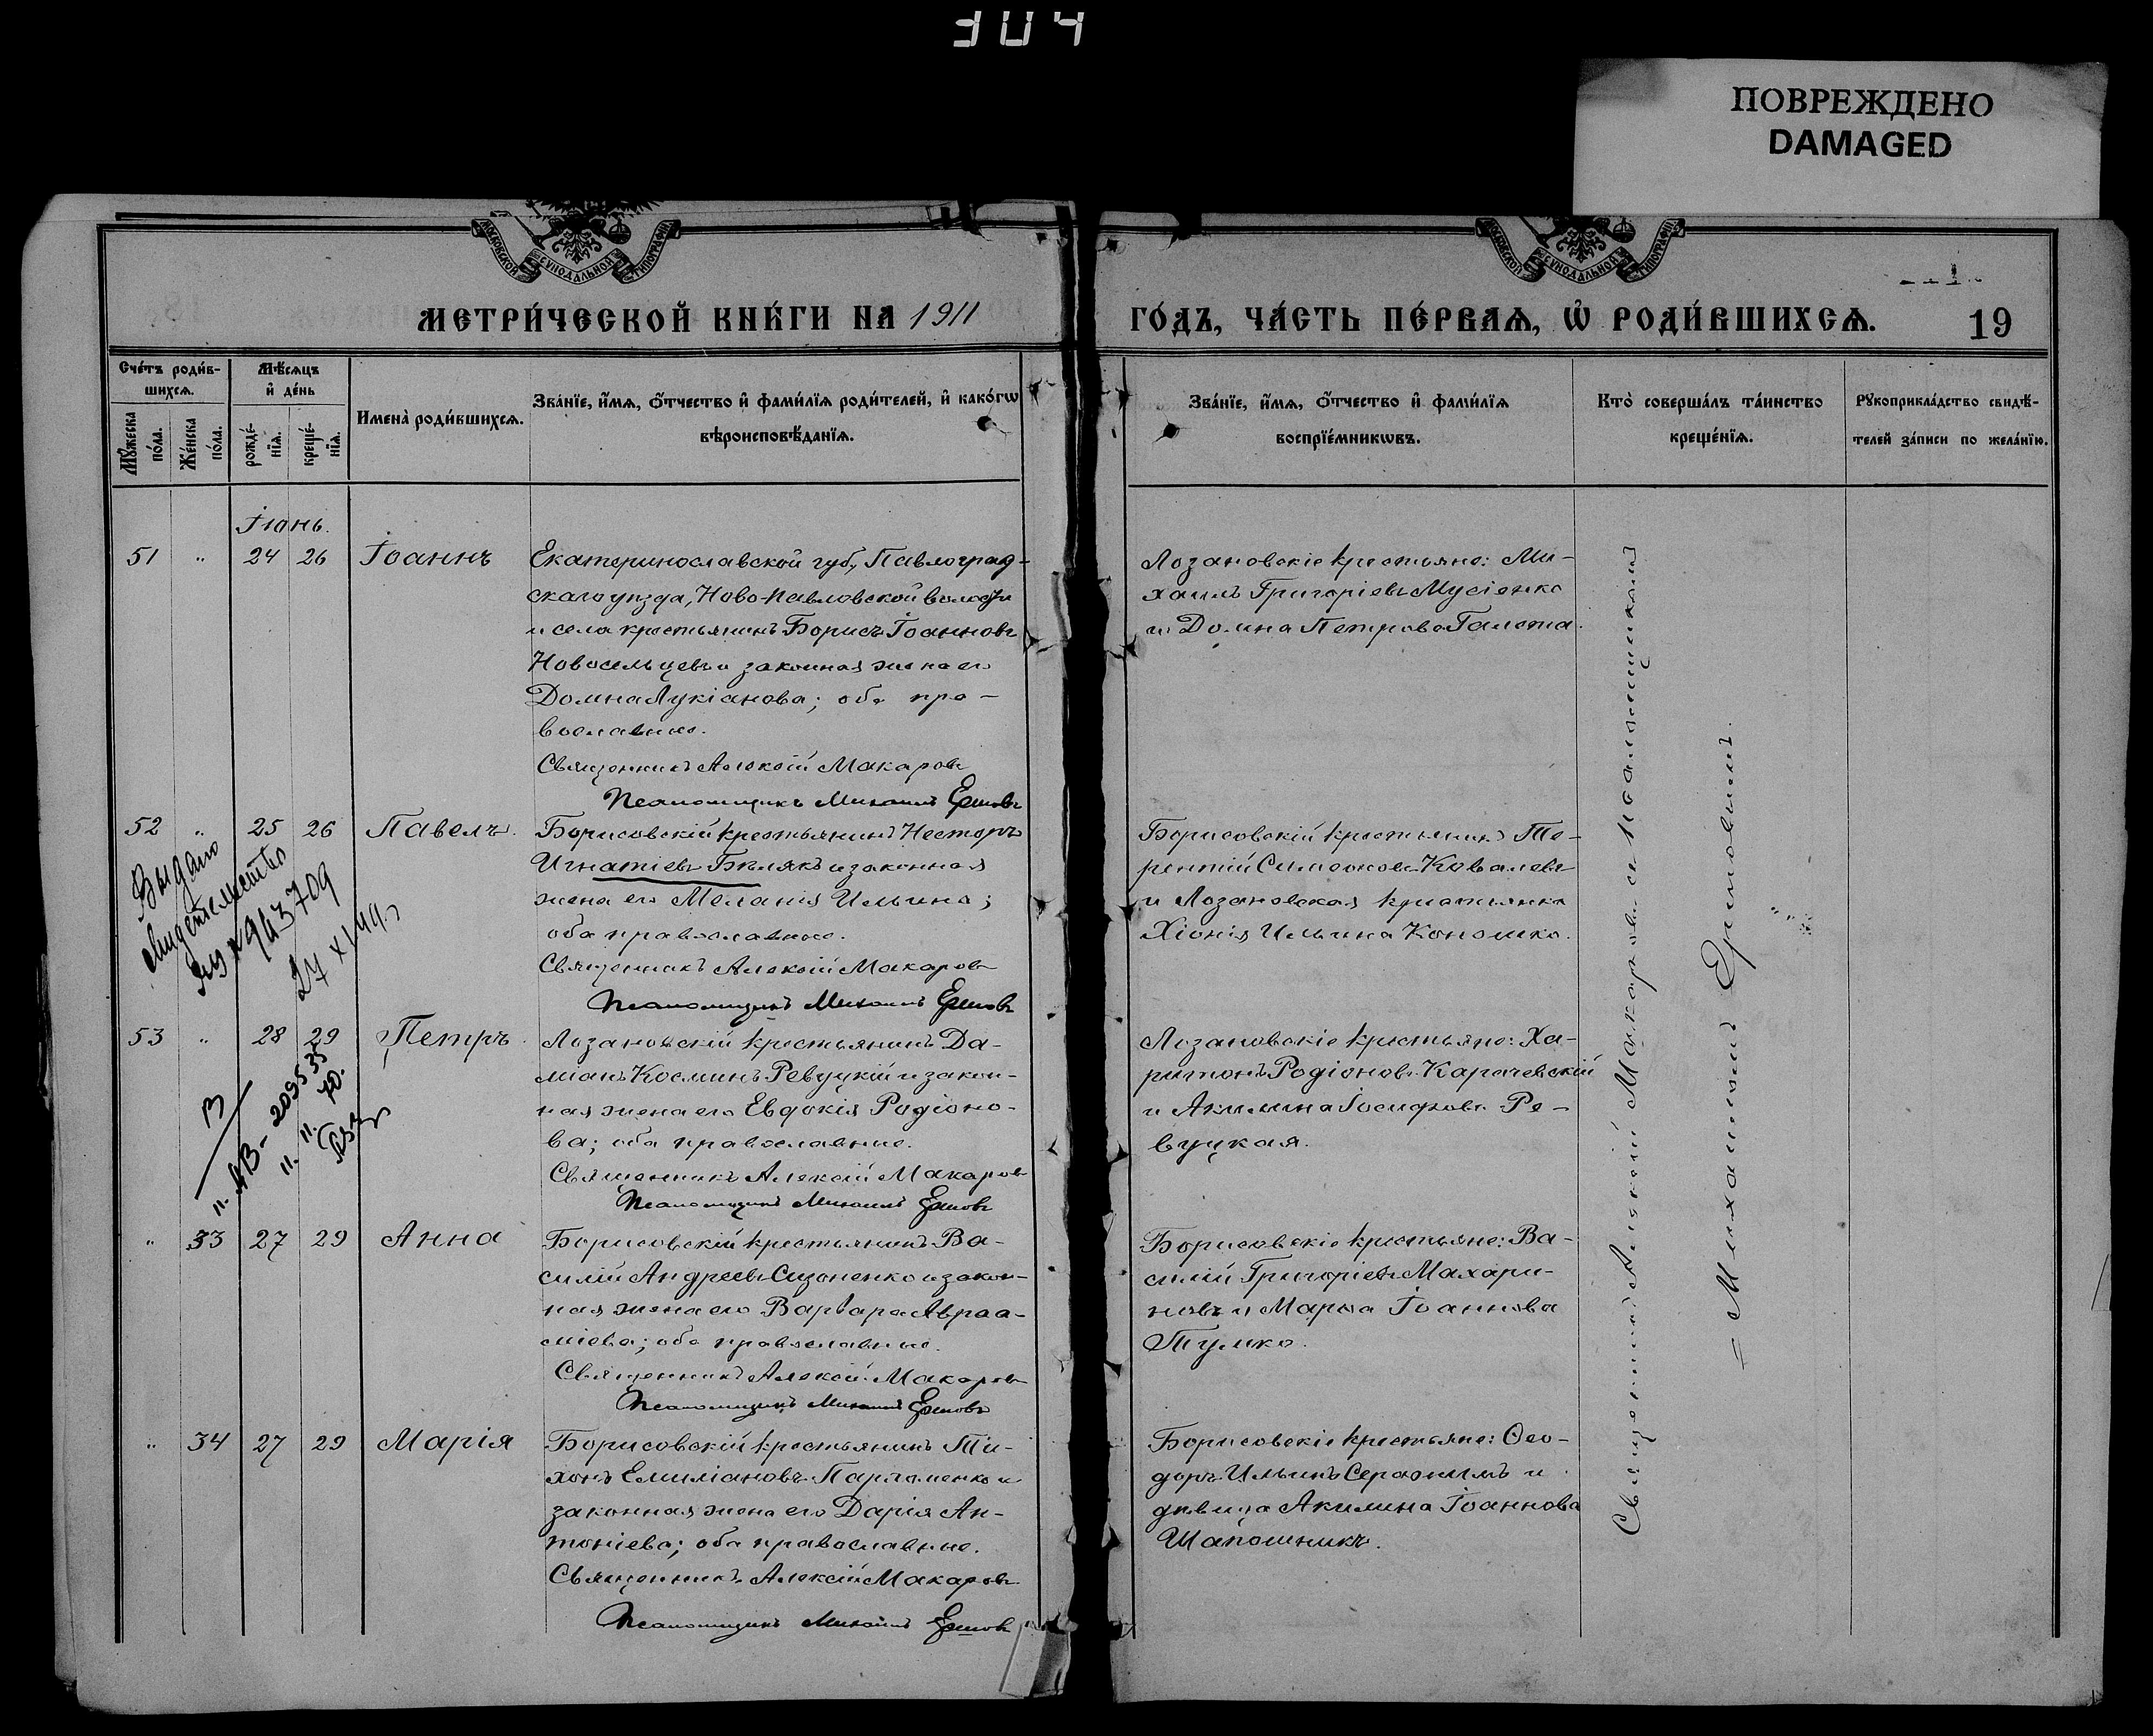 304
ПОВРЕЖДЕНО
DAMAGED
МОСКОВСКОЙ СѴНОДАЛЬНОЙ ТИПОГРАФІИ
МОСКОВСКОЙ СѴНОДАЛЬНОЙ ТИПОГРАФІИ
МЕТРИ́ЧЕСКОЙ КНИ́ГИ НА 1911
ГО́ДЪ, ЧА́СТЬ ПЕ́РВАѦ, Ѽ РОДИ́ВШИХСѦ.
19
Сче́тъ роди́в-
шихсѧ.
Мѹ́жеска по́ла.
Же́нска по́ла.
Мѣ́сѧцъ
и҆ де́нь
рожде́-
нїѧ.
креще́-
нїѧ.
Имена̀ роди́вшихсѧ.
Зва́нїе, и҆́мѧ, ѻ҆́тчество и҆ фами́лїѧ роди́телей, и҆ како́гѡ
вѣроисповѣ́данїѧ.
Зва́нїе, и҆́мѧ, ѻ҆́тчество и҆ фами́лїѧ
воспрїе́мникѡвъ.
Кто̀ соверша́лъ та́инство
креще́нїѧ.
Рꙋкоприкла́дство свидѣ́-
телей за́писи по жела́нїю.
Іюнь.
51 " 24 26 Іоаннъ
Екатеринославской губ., Павлоград-
скаго уѣзда, Ново-Павловской волости
и села крестьянинъ Борисъ Іоанновъ
Новосельцевъ и законная жена его
Домна Лукіанова; оба пра-
вославные.
Священникъ Алексій Макаровъ
Псаломщикъ Михаилъ Ершовъ
Лозановскіе крестьяне: Ми-
хаилъ Григоріевъ Мусіенко
и Домна Петрова Галота.
52 " 25 26 Павелъ.
Борисовскій крестьянинъ Несторъ
Игнатіевъ Бѣлякъ и законная
жена его Меланія Ильина;
оба православные.
Священникъ Алексій Макаровъ
Псаломщикъ Михаилъ Ершовъ
Борисовскій крестьянинъ Те-
рентій Симеоновъ Ковалевъ
и Лозановская крестьянка
Хіонія Ильина Кономко.
Выдано
свидетельство
53 " 28 29 Петръ.
Лозановскій крестьянинъ Да-
міанъ Косминъ Ревуцкій и закон-
ная жена его Евдокія Родіоно-
ва; оба православные.
Священникъ Алексій Макаровъ
Псаломщикъ Михаилъ Ершовъ
Лозановскіе крестьяне: Ха-
ритонъ Родіоновъ Карачевскій
и Акилина Іосифова Ре-
вуцкая.
" 33 27 29 Анна
Борисовскій крестьянинъ Ва-
силій Андреевъ Сизоненко и закон-
ная жена его Варвара Авраа-
міева; оба православные.
Священникъ Алексій Макаровъ
Псаломщикъ Михаилъ Ершовъ
Борисовскіе крестьяне: Ва-
силій Григоріевъ Махари-
новъ и Марѳа Іоаннова
Тумко.
" 34 27 29 Марія
Борисовскій крестьянинъ Ти-
хонъ Емиліановъ Пархоменко и
законная жена его Дарія Ан-
тоніева; оба православные.
Священникъ Алексій Макаровъ
Псаломщикъ Михаилъ Ершовъ
Борисовскіе крестьяне: Ѳео-
доръ Ильинъ Серафимъ и
дѣвица Акилина Іоаннова
Шапошникъ.
Священникъ Алексій Макаровъ съ псаломщикомъ
= Михаиломъ Ершовымъ.